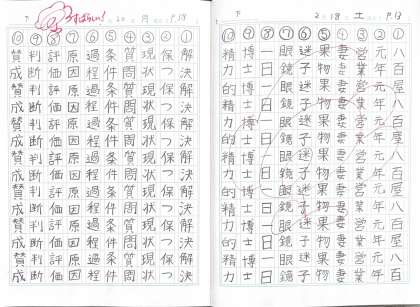 下
土
① 八百屋八百屋八百屋八百屋八百
② 元年元年元年元年元年元年元年
③ 営業営業営業営業営業営業営業
④ 妻妻妻妻妻妻妻妻妻妻妻妻妻妻
⑤ 果物果物果物果物果物果物果物
⑥ 迷子迷子迷子迷子迷子迷子迷子
⑦ 眼鏡眼鏡眼鏡眼鏡眼鏡眼鏡眼鏡
⑧ 一日一日一日一日一日一日一日
⑨ 博士博士博士博士博士博士博士
⑩ 精力的精力的精力的精力的精力
すばらしい!
20 月 P.18
① 解決解決解決解決解決解決解決
② 保つ保つ保つ保つ保つ保つ保つ
③ 現状現状現状現状現状現状現状
④ 質問質問質問質問質問質問質問
⑤ 条件条件条件条件条件条件条件
⑥ 過程過程過程過程過程過程過程
⑦ 原因原因原因原因原因原因原因
⑧ 評価評価評価評価評価評価評価
⑨ 判断判断判断判断判断判断判断
⑩ 賛成賛成賛成賛成賛成賛成賛成